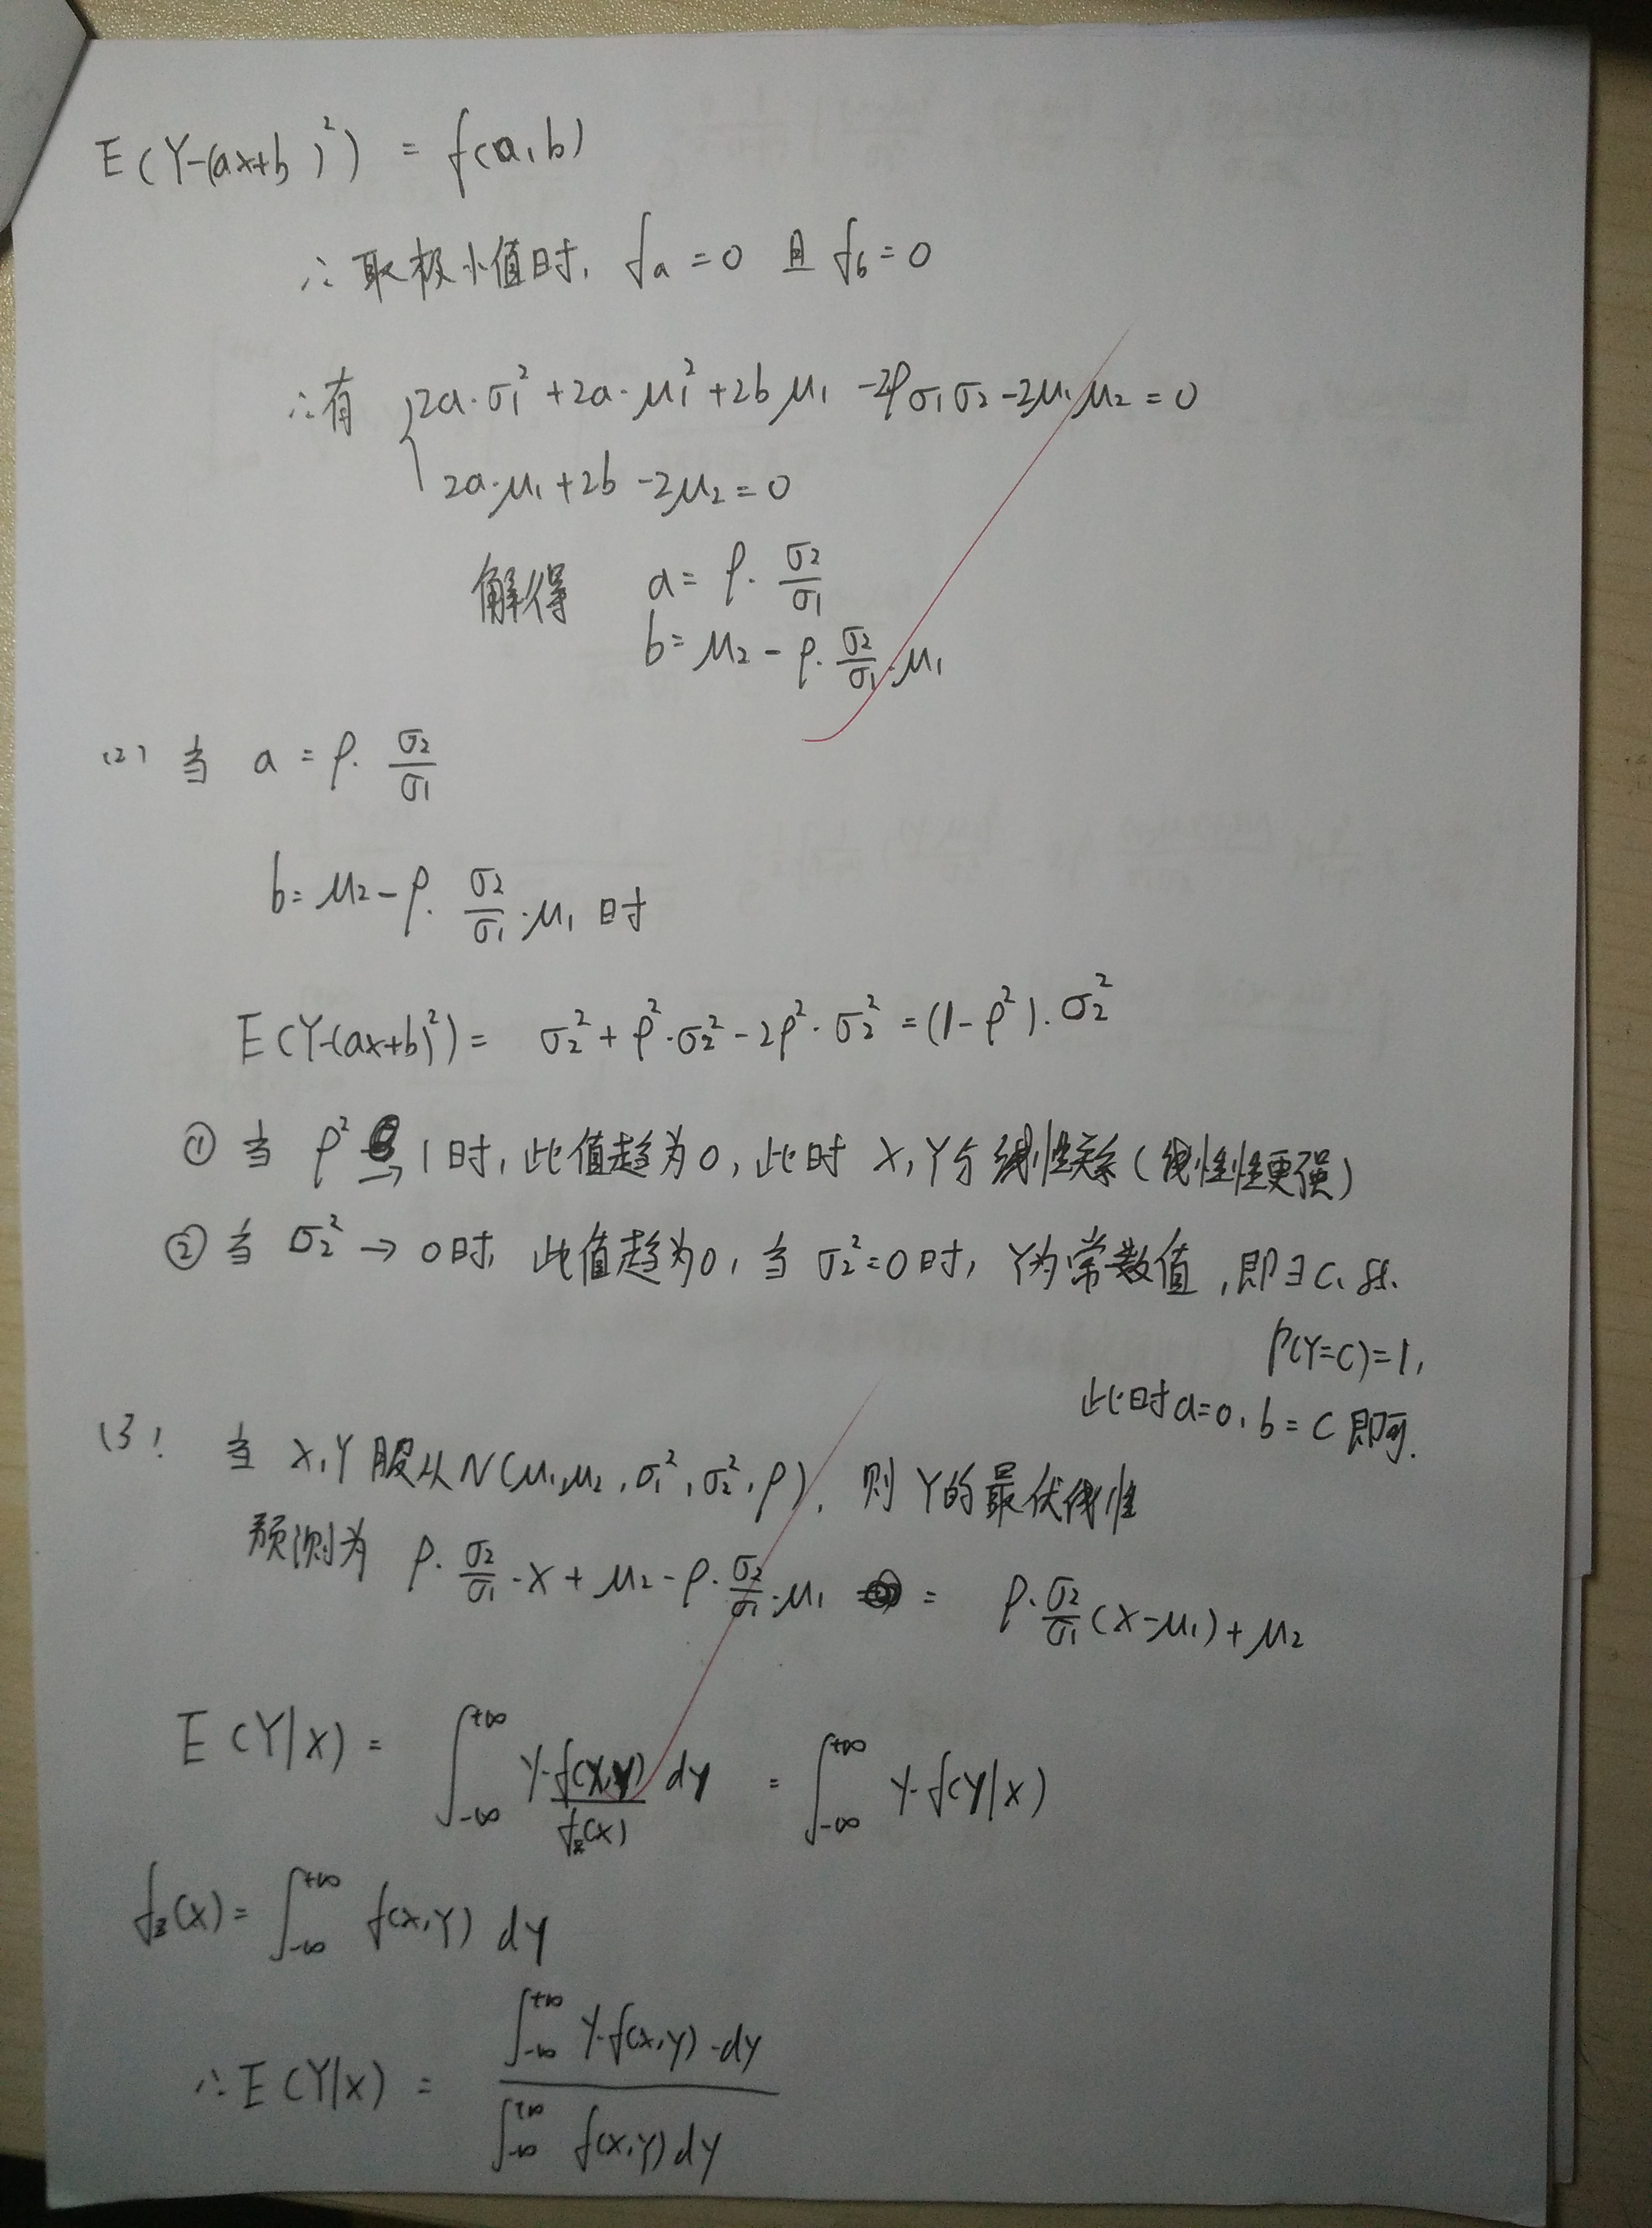 E(Y-(ax+b)²) = f(a,b)
∴取极小值时, fa=0 且 fb=0
∴有 { 2a·σ₁²+2a·μ₁²+2bμ₁-2ρσ₁σ₂-2μ₁μ₂=0
2a·μ₁+2b-2μ₂=0
解得 a=ρ·σ₂/σ₁
b=μ₂-ρ·σ₂/σ₁·μ₁
(2) 当 a=ρ·σ₂/σ₁
b=μ₂-ρ·σ₂/σ₁·μ₁ 时
E(Y-(ax+b)²)= σ₂²+ρ²·σ₂²-2ρ²·σ₂²=(1-ρ²)·σ₂²
① 当 ρ²→1时, 此值趋为0, 此时 X,Y 线性关系(线性性更强)
② 当 σ₂²→0时, 此值趋为0, 当 σ₂²=0时, Y为常数值, 即∃C, s.t.
P(Y=C)=1,
此时a=0, b=C即可.
(3) 当 X,Y 服从N(μ₁,μ₂,σ₁²,σ₂²,ρ), 则Y的最优线性
预测为 ρ·σ₂/σ₁·X+μ₂-ρ·σ₂/σ₁·μ₁ = ρ·σ₂/σ₁(X-μ₁)+μ₂
E(Y|X)= ∫_{-∞}^{+∞} y·f(X,Y)/fx(X) dy = ∫_{-∞}^{+∞} y·f(Y|X)
fx(X)= ∫_{-∞}^{+∞} f(X,Y) dy
∴E(Y|X)= ∫_{-∞}^{+∞} y·f(X,Y)·dy / ∫_{-∞}^{+∞} f(X,Y)dy